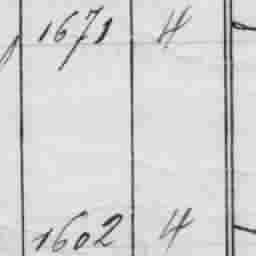 1671 4
1602 4